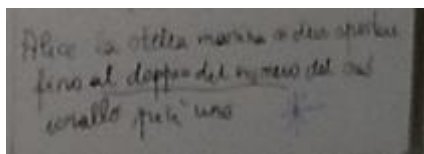 Alice la stella marina si deve spostare
fino al doppio del numero del suo
corallo più uno